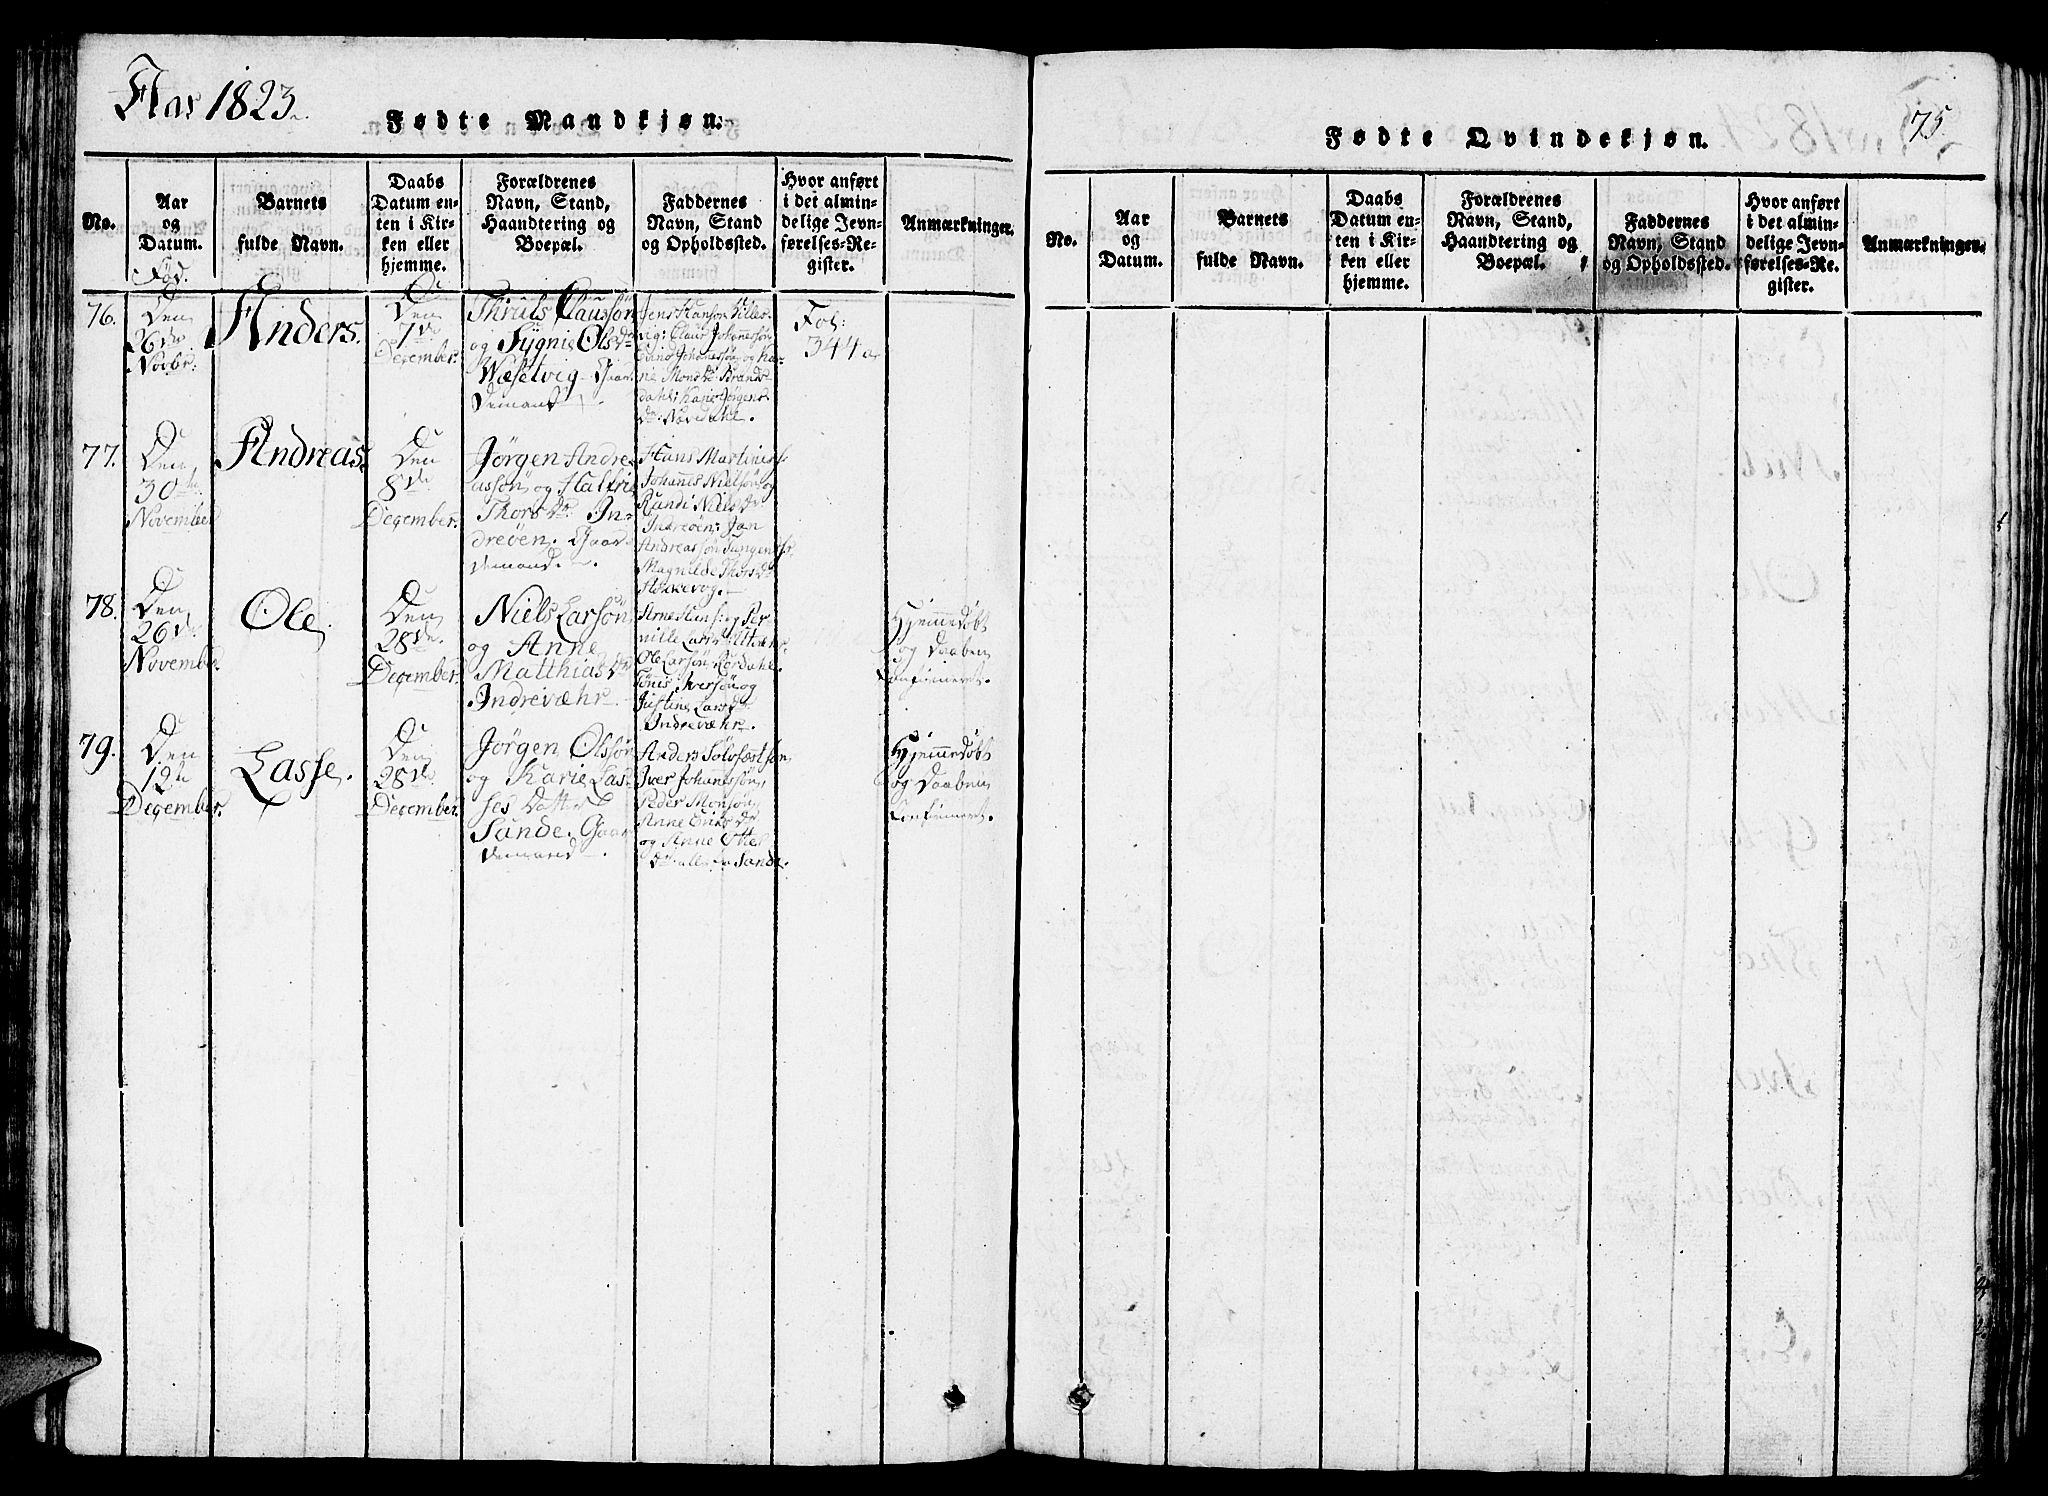 Aar 1823.
Fødte Mandkjøn.
No.
Aar
og
Datum.
Fød.
Barnets
fulde Navn.
Daabs
Datum en-
ten i Kir-
ken eller
hjemme.
Forældrenes
Navn, Stand,
Haandtering og
Boepæl.
Faddernes
Navn, Stand
og Opholdssted.
Hvor anført
i det almin-
delige Jevn-
førelses-Re-
gister.
Anmærkninger.
76.
Den
26de
Novbr:
Anders.
Den
7de
December.
Thruls Claussøn
og Sygnie Olsdr
Wæsetvig. Gaar-
demand.
Jens Hanson
vig: Claus Johannessøn
Johannessøn og Ka-
rie Monsdr Brands-
dahl: Karie Jørgens-
dr:
Fol:
344 a
77.
Den
30te
November
Andreas.
Den
8de
December.
Jørgen Andre-
assøn og Halfrie
Thorsdr. In-
dreøen. Gaar-
demand.
Hans Martiner
Johannes Nielsøn og
Randi Nielsdr
Indreøen: Jan
Andreassøn
Magnilde Thorsdr
78.
Den
26de
November.
Ole,
Den
28de
December.
Niels Larsøn
og Anne
Matthiasdr
Indrevæhr.
Ole Larsøn, Rørdahl.
Tønis Iversøn og
Justine Larsdr
Indrevæhr.
Hjemmedøbt
og Daaben
Confirmeret.
79.
Den
12te
December.
Lasse.
Den
28de
December.
Jørgen Olssøn
og Karie Las-
ses Datter
Sande. Gaar-
demand.
Anders Solvfæstsøn,
Iver Johannessøn,
Peder Monsøn,
Anne Eriksdr
og Anne Ottes
Dr. alle fra Sande.
Hjemmedøbt
og Daaben
Confirmeret.
75.
Fødte Qvindekjøn.
No.
Aar
og
Datum.
Barnets
fulde Navn.
Daabs
Datum en-
ten i Kir-
ken eller
hjemme.
Forældrenes
Navn, Stand,
Haandtering og
Boepæl.
Faddernes
Navn, Stand
og Opholdssted.
Hvor anført
i det almin-
delige Jevn-
førelses-Re-
gister.
Anmærkninger.